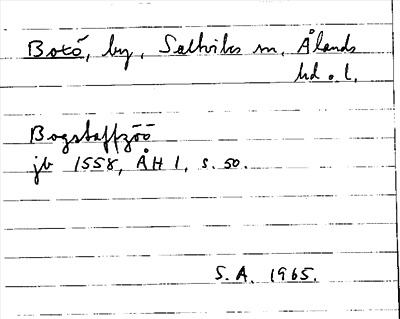 Botö, by, Saltviks sn, Ålands
hd. l.
Bogstaffzöö
jb 1558, ÅH 1, s. 50.
S.A. 1965.